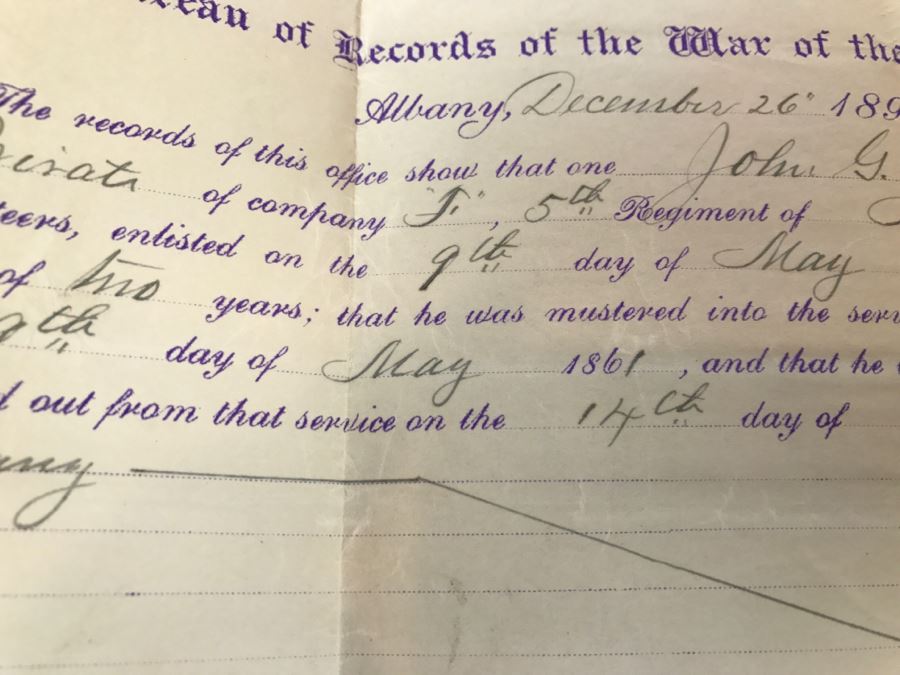 reau of Records of the War of the
Albany, December 26" 189
The records of this office show that one John G.
of company "F.", 5th Regiment of
teers, enlisted on the 9th day of May
of two years; that he was mustered into the serv
9th day of May 1861, and that he
d out from that service on the 14th day of